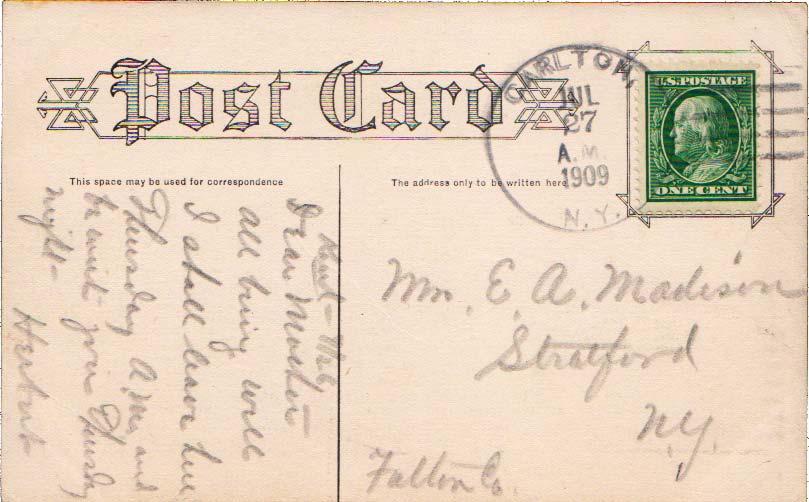 Post Card
CARLTON,
JUL
27
A.M.
1909
N.Y.
U.S. POSTAGE
ONE CENT
This space may be used for correspondence
The address only to be written here
Kent -
Dear Mother
all being well
I shall leave here
Thursday A.M. and
be with you Thursday
night -
Herbert
Mrs. E. A. Madison
Stratford
NY.
Fulton Co.